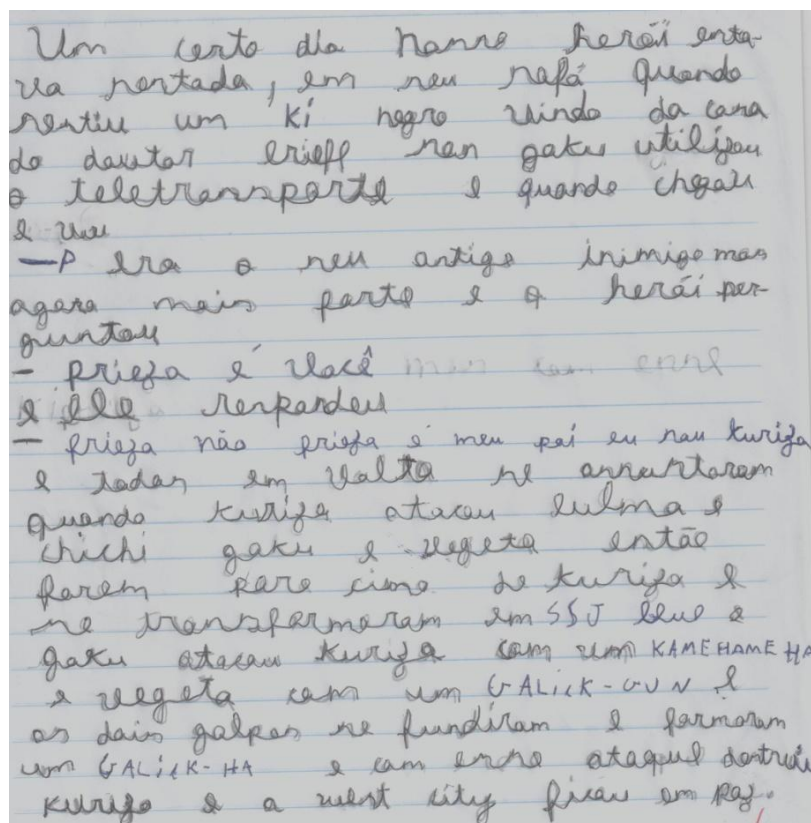 Um certo dia nosso herói esta-
va sentado, em seu sofá quando
sentiu um ki negro vindo da casa
do doutor brieff son goku utilizou
o teletransporte e quando chegou
e viu
—P era o seu antigo inimigo mas
agora mais forte e o herói per-
guntou
- frieza é você
e ele respondeu
- frieza não frieza é meu pai eu sou kuriza
e todos em volta se assustaram
quando kuriza atacou bulma e
chichi goku e vegeta então
foram para cima de kuriza e
se transformaram em SSJ blue e
goku atacou kuriza com um KAMEHAMEHA
e vegeta com um GALICK-GUN e
os dois golpes se fundiram e formaram
um GALICK-HA e com esse ataque destruiu
kuriza e a west city ficou em paz.